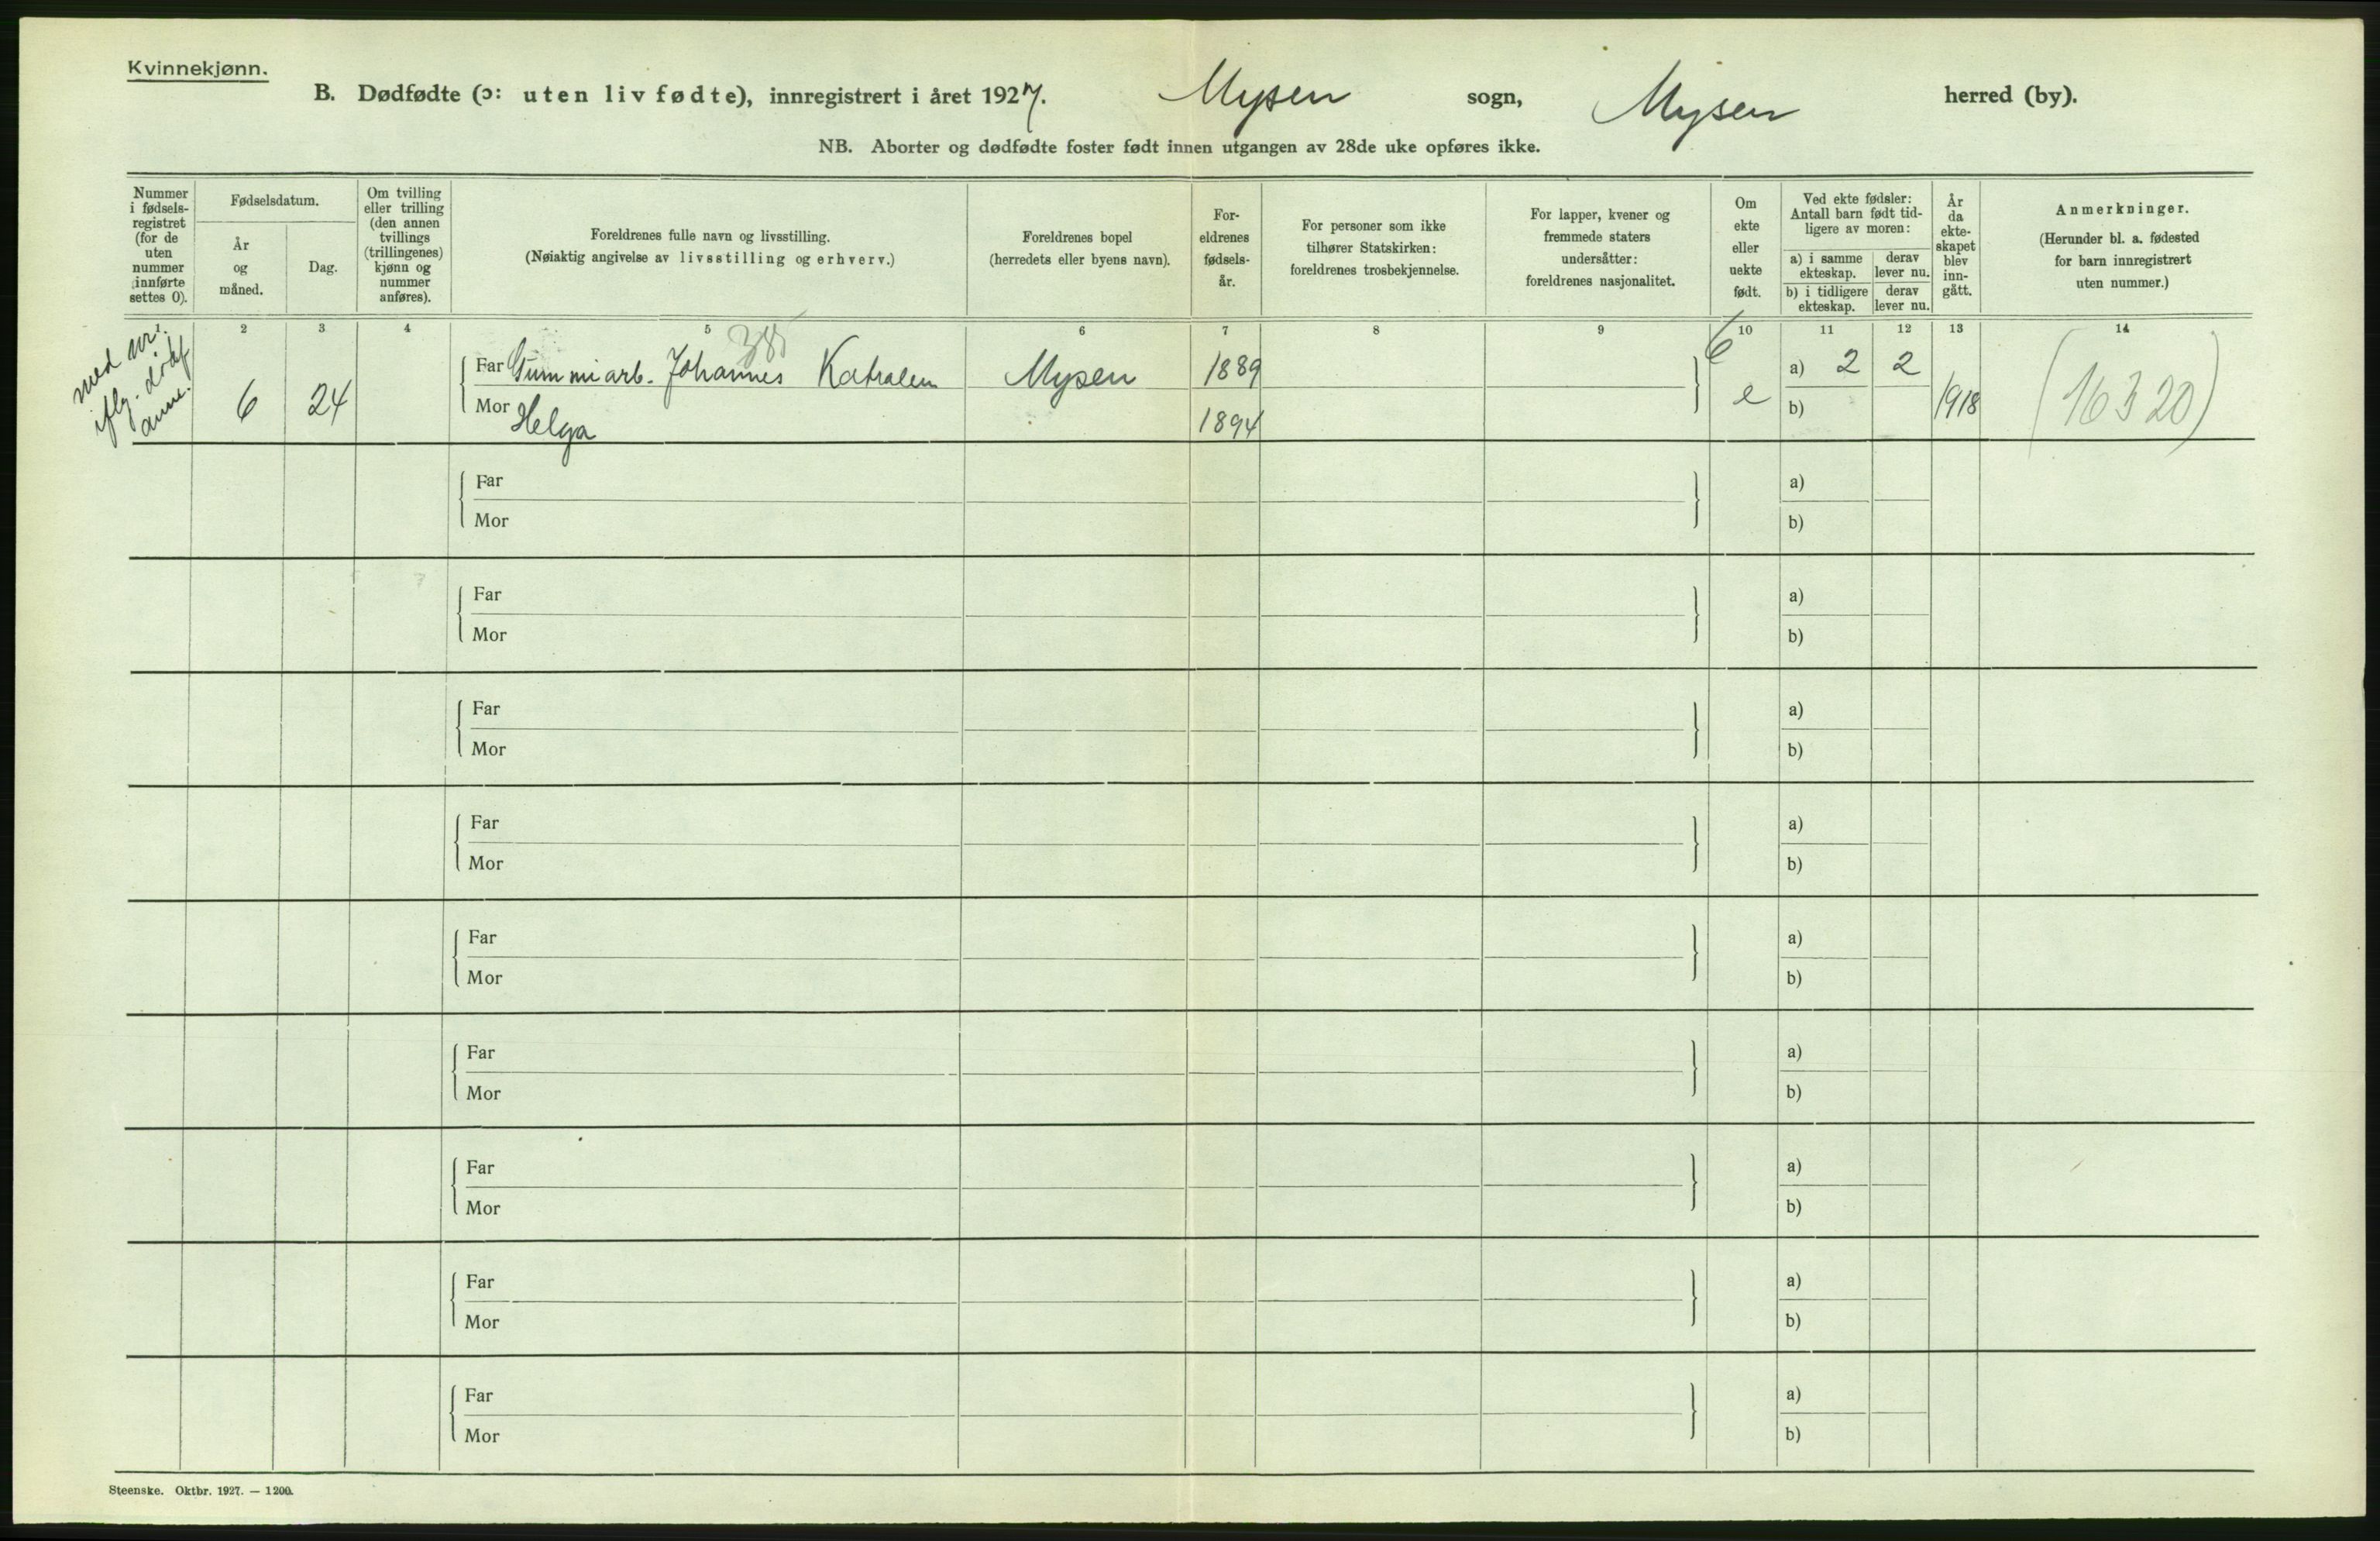 Kvinnekjønn.
B. Dødfødte (ɔ: uten liv fødte), innregistrert i året 1927. Mysen sogn, Mysen herred (by).
NB. Aborter og dødfødte foster født innen utgangen av 28de uke opføres ikke.
Nummer i fødsels-registret (for de uten nummer innførte settes 0).
Fødselsdatum.
År og måned.
Dag.
Om tvilling eller trilling (den annen tvillings (trillingenes) kjønn og nummer anføres).
Foreldrenes fulle navn og livsstilling.
(Nøiaktig angivelse av livsstilling og erhverv.)
Foreldrenes bopel
(herredets eller byens navn).
For-eldrenes fødsels-år.
For personer som ikke tilhører Statskirken: foreldrenes trosbekjennelse.
For lapper, kvener og fremmede staters undersåtter: foreldrenes nasjonalitet.
Om ekte eller uekte født.
Ved ekte fødsler: Antall barn født tid-ligere av moren:
a) i samme ekteskap.
derav lever nu.
b) i tidligere ekteskap.
derav lever nu.
År da ekte-skapet blev inn-gått.
Anmerkninger.
(Herunder bl. a. fødested for barn innregistrert uten nummer.)
1. 2 3 4 5 6 7 8 9 10 11 12 13 14
med nr.
iflg. dødf.
anm.
6 24
385
Far Gummiarb. Johannes Mysen 1889 6 a) 2 2
Mor Helga 1894 e b) 1918 (16320)
Far a)
Mor b)
Far a)
Mor b)
Far a)
Mor b)
Far a)
Mor b)
Far a)
Mor b)
Far a)
Mor b)
Far a)
Mor b)
Far a)
Mor b)
Far a)
Mor b)
Steenske. Oktbr. 1927. — 1200.